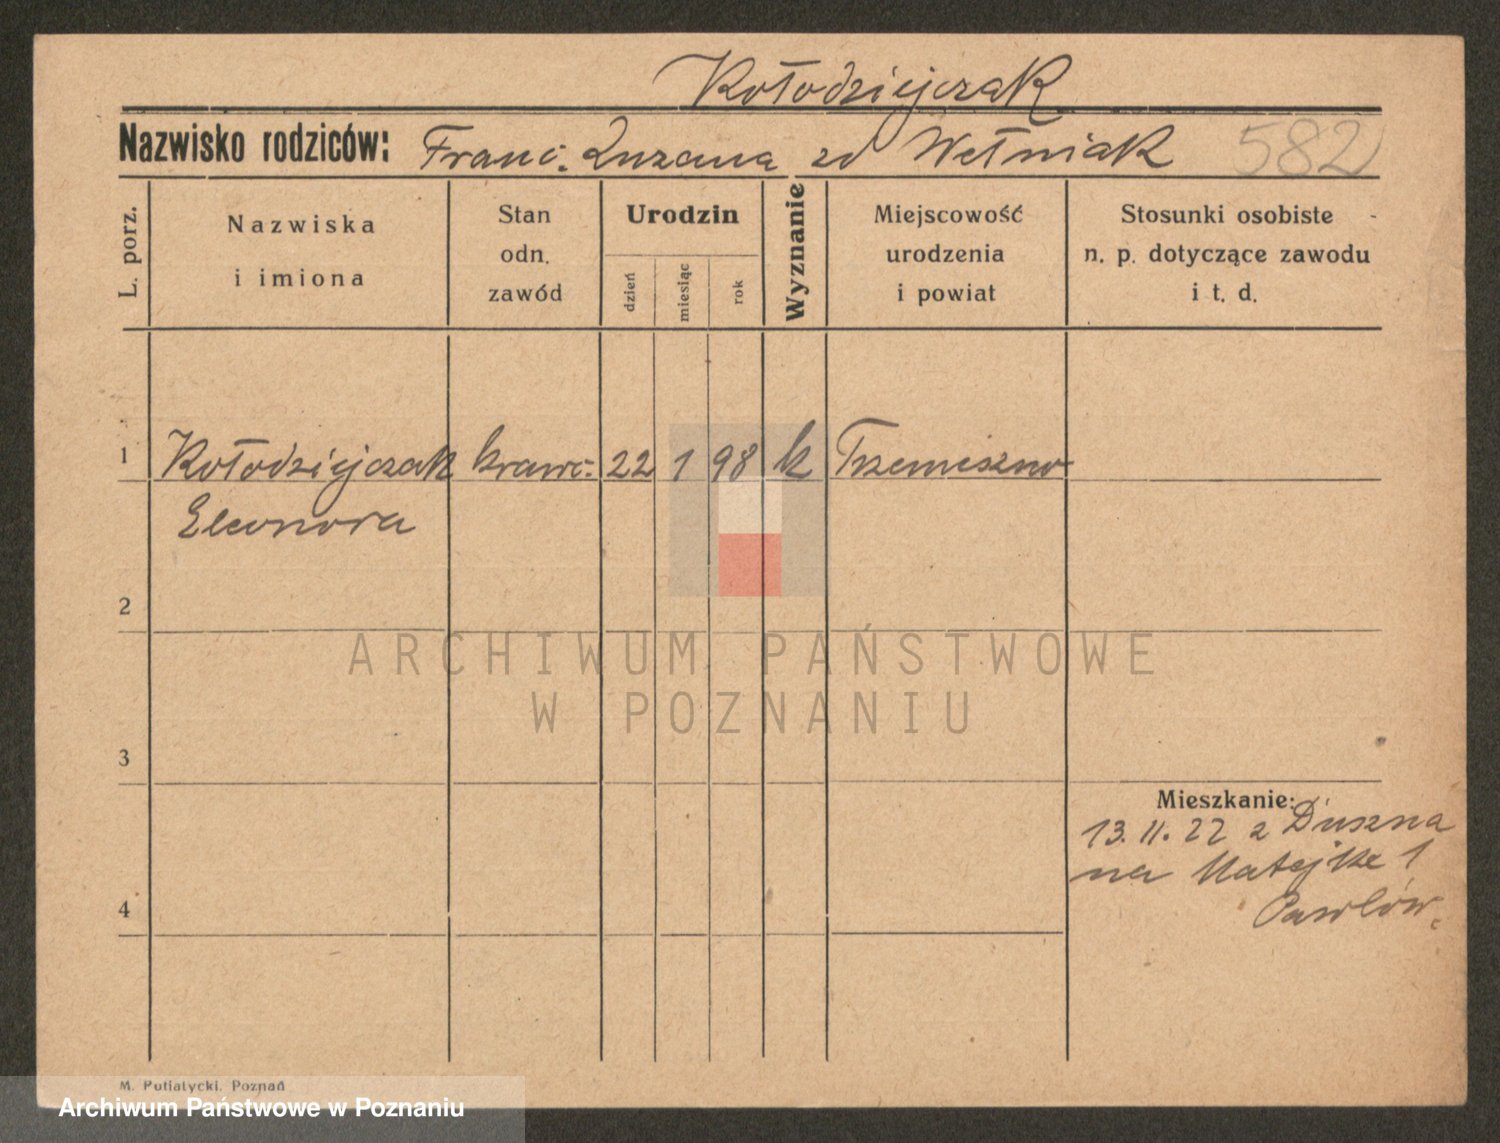 Kołodziejczak
Nazwisko rodziców: Franc. Zuzanna zd Wełniak 582
L. porz.
Nazwiska
i imiona
Stan
odn.
zawód
Urodzin
dzień
miesiąc
rok
Wyznanie
Miejscowość
urodzenia
i powiat
Stosunki osobiste
n. p. dotyczące zawodu
i t. d.
1 Kołodziejczak krawc. 22 1 98 k Trzemeszno
Eleonora
2
ARCHIWUM PAŃSTWOWE
W POZNANIU
3
Mieszkanie:
13. 11. 22 z Duszna
na Matejke 1
4
Pawłów.
M. Putiatycki, Poznań
Archiwum Państwowe w Poznaniu